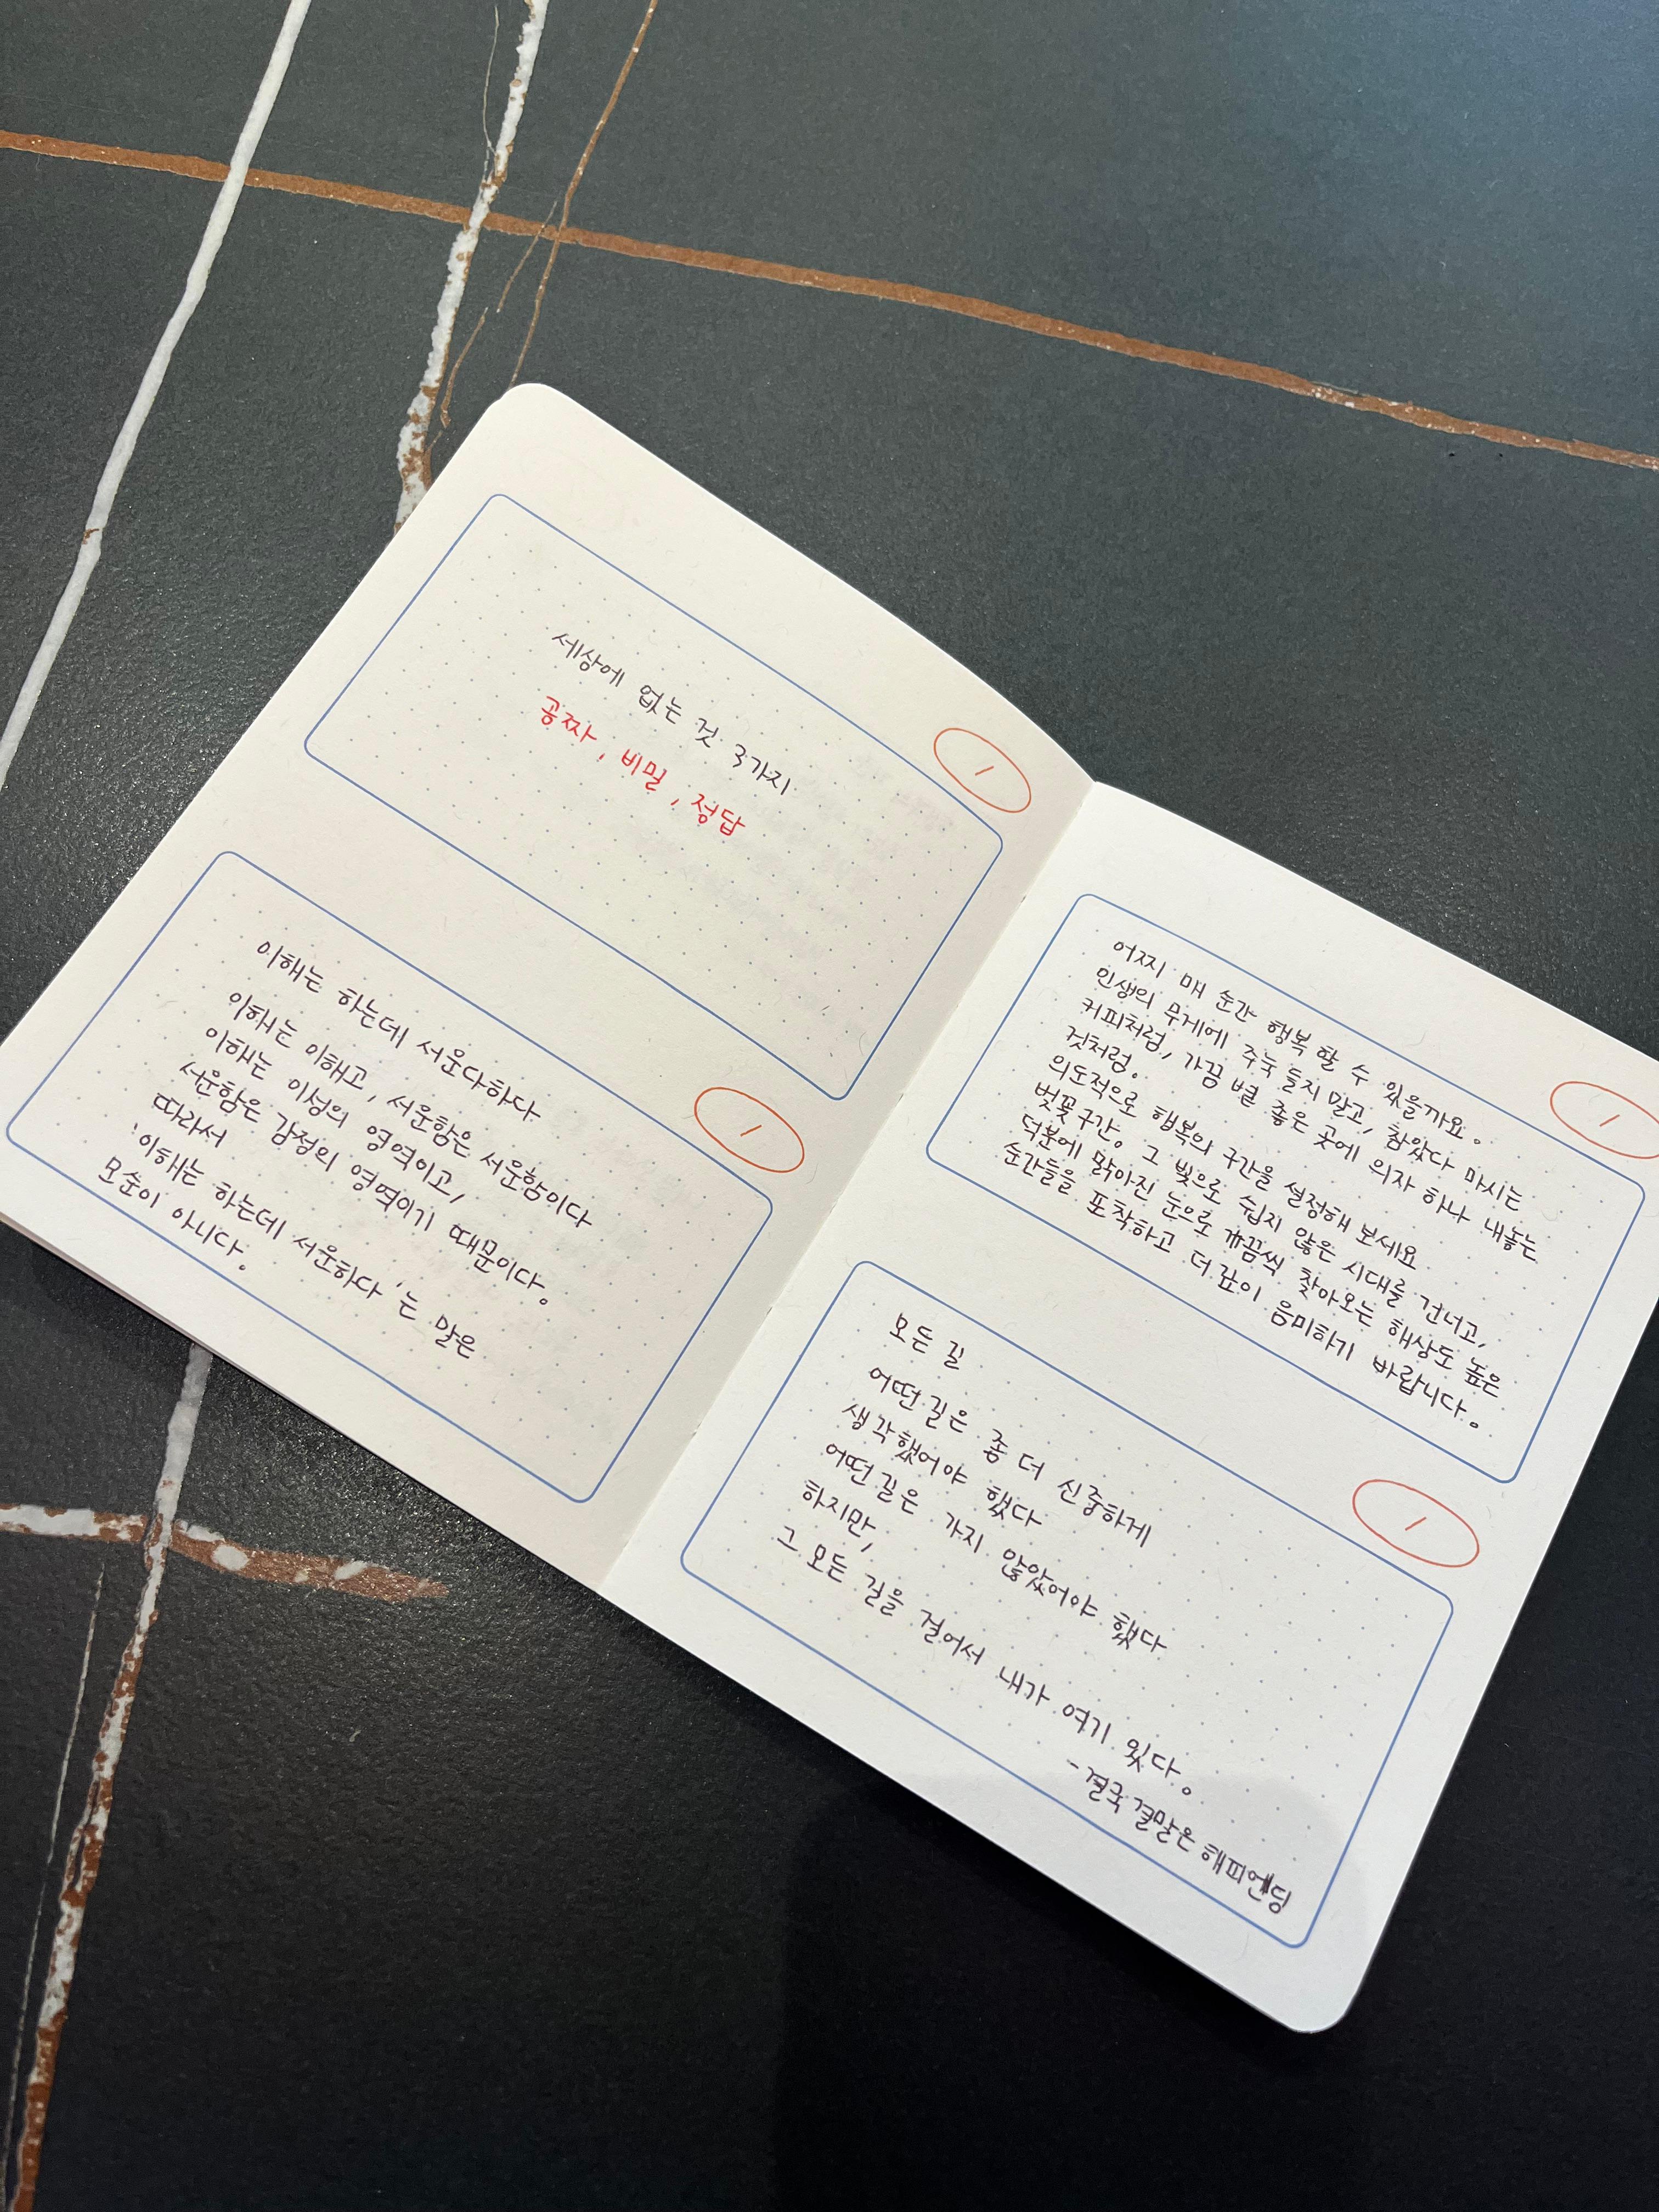 세상에 없는 것 3가지
공짜, 비밀, 정답
이해는 하는데 서운다하다
이해는 이해고, 서운함은 서운함이다
이해는 이성의 영역이고,
서운함은 감정의 영역이기 때문이다.
따라서
'이해는 하는데 서운하다'는 말은
모순이 아니다.
어찌 매 순간 행복 할 수 있을까요.
인생의 무게에 주눅 들지 말고, 참았다 마시는
커피처럼, 가끔 볕 좋은 곳에 의자 하나 내놓는
것처럼.
의도적으로 행복의 구간을 설정해 보세요
벚꽃구간. 그 빛으로 쉽지 않은 시대를 건너고,
덕분에 맑아진 눈으로 가끔씩 찾아오는 해상도 높은
순간들을 포착하고 더 깊이 음미하기 바랍니다.
모든 길
어떤 길은 좀 더 신중하게
생각했어야 했다
어떤 길은 가지 않았어야 했다
하지만,
그 모든 길을 걸어서 내가 여기 있다.
- 결국 결말은 해피엔딩